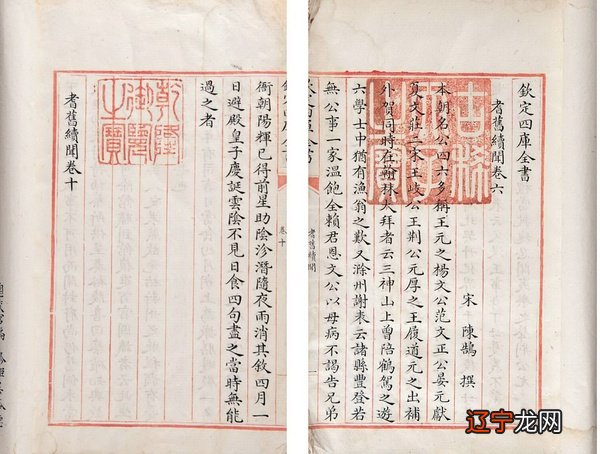 欽定四庫全書
耆舊續聞卷六
宋 陳鵠 撰
本朝名公四六多稱王元之楊文公范文正公晏元獻
夏文莊二宋王岐公王荆公元厚之王履道元之出補
外賀同時在翰林大拜者云三神山上曾陪鶴駕之遊
六學士中猶有漁翁之歎又滁州謝表云諸縣豐登若
無公事一家溫飽全賴君恩文公以母病不謁告兄弟
古稀天子之寶
耆舊續聞
卷十
衙朝陽輝已得前星助陰沴潛隨夜雨消其敘四月一
日避殿皇子慶誕雲陰不見日食四句盡之當時無能
過之者
乾隆御覽之寶
耆舊續聞卷十
辽宁龙网